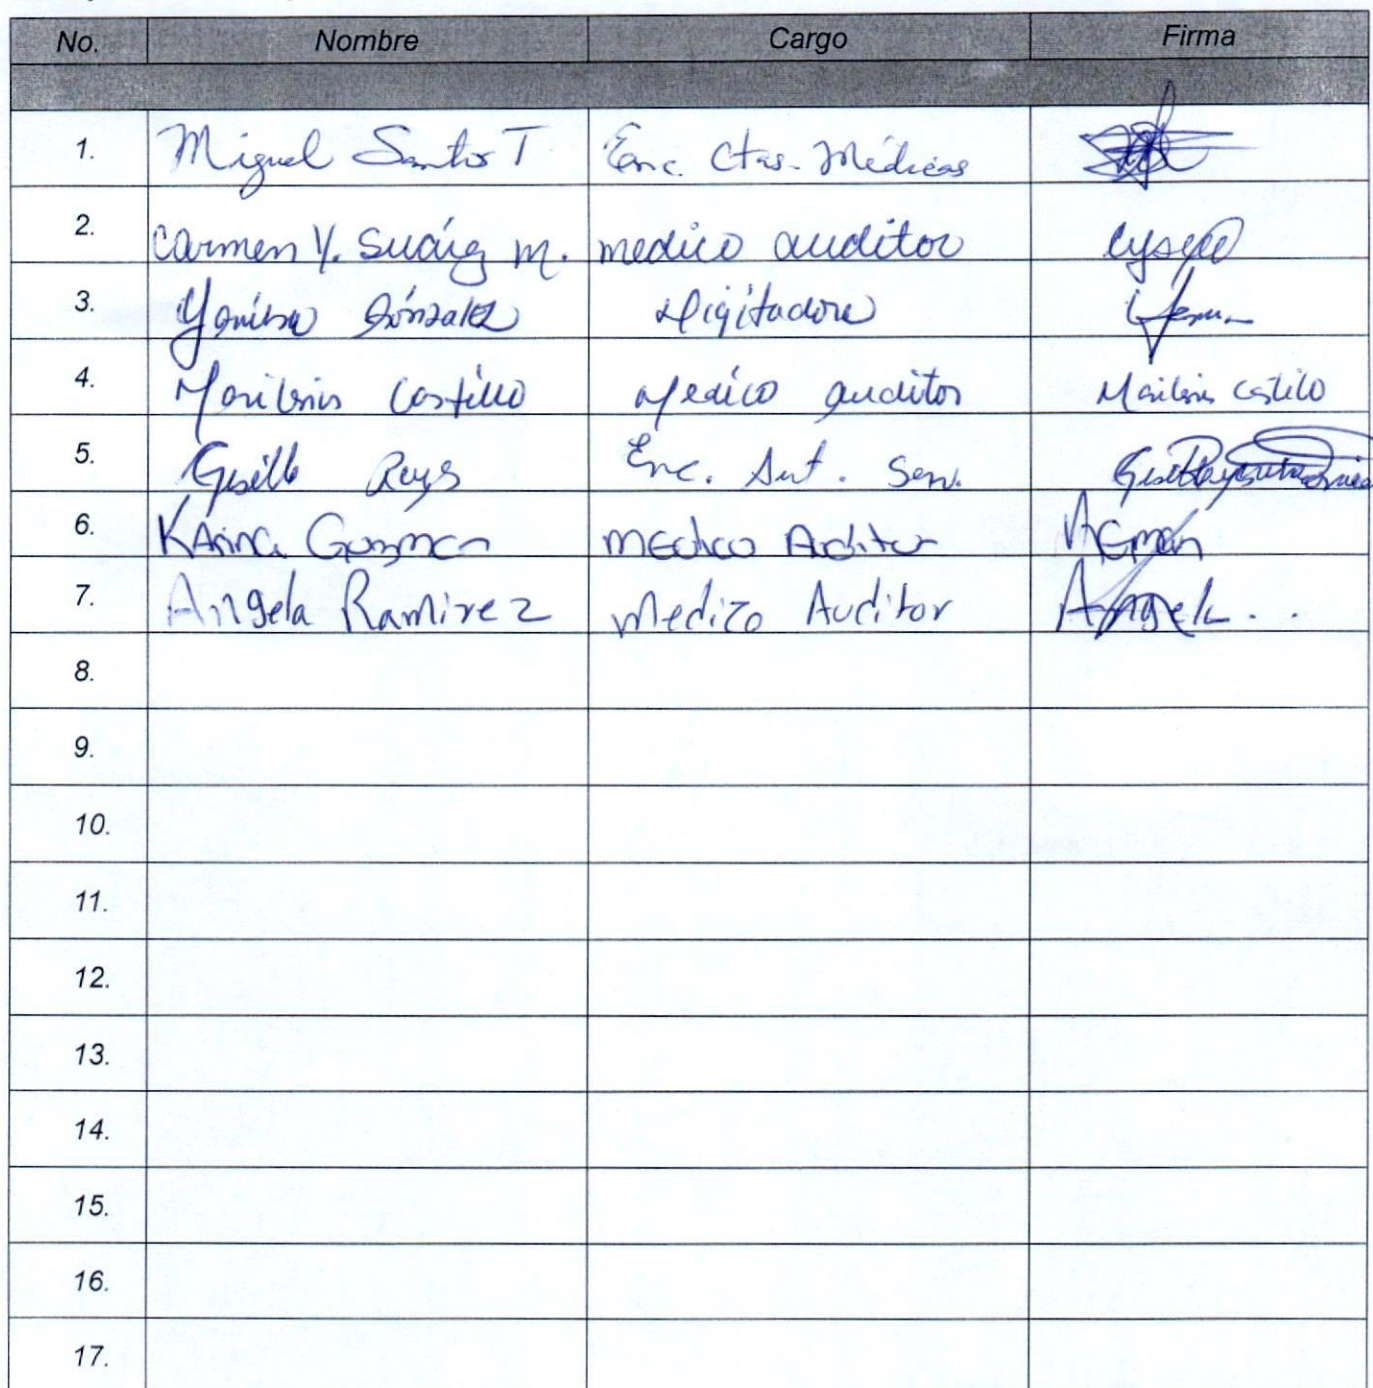 No. Nombre Cargo Firma
1. Miguel Santos T Enc. Ctas. Médicas
2. Carmen Y. Suárez M. medico auditor
3. González Digitadora
4. Marilenis Castillo Medico auditor Marilenis Castillo
5. Giselle Reyes Enc. Aut. Serv.
6. Karina Guzman Medico Auditor
7. Angela Ramirez Medico Auditor Angela
8.
9.
10.
11.
12.
13.
14.
15.
16.
17.